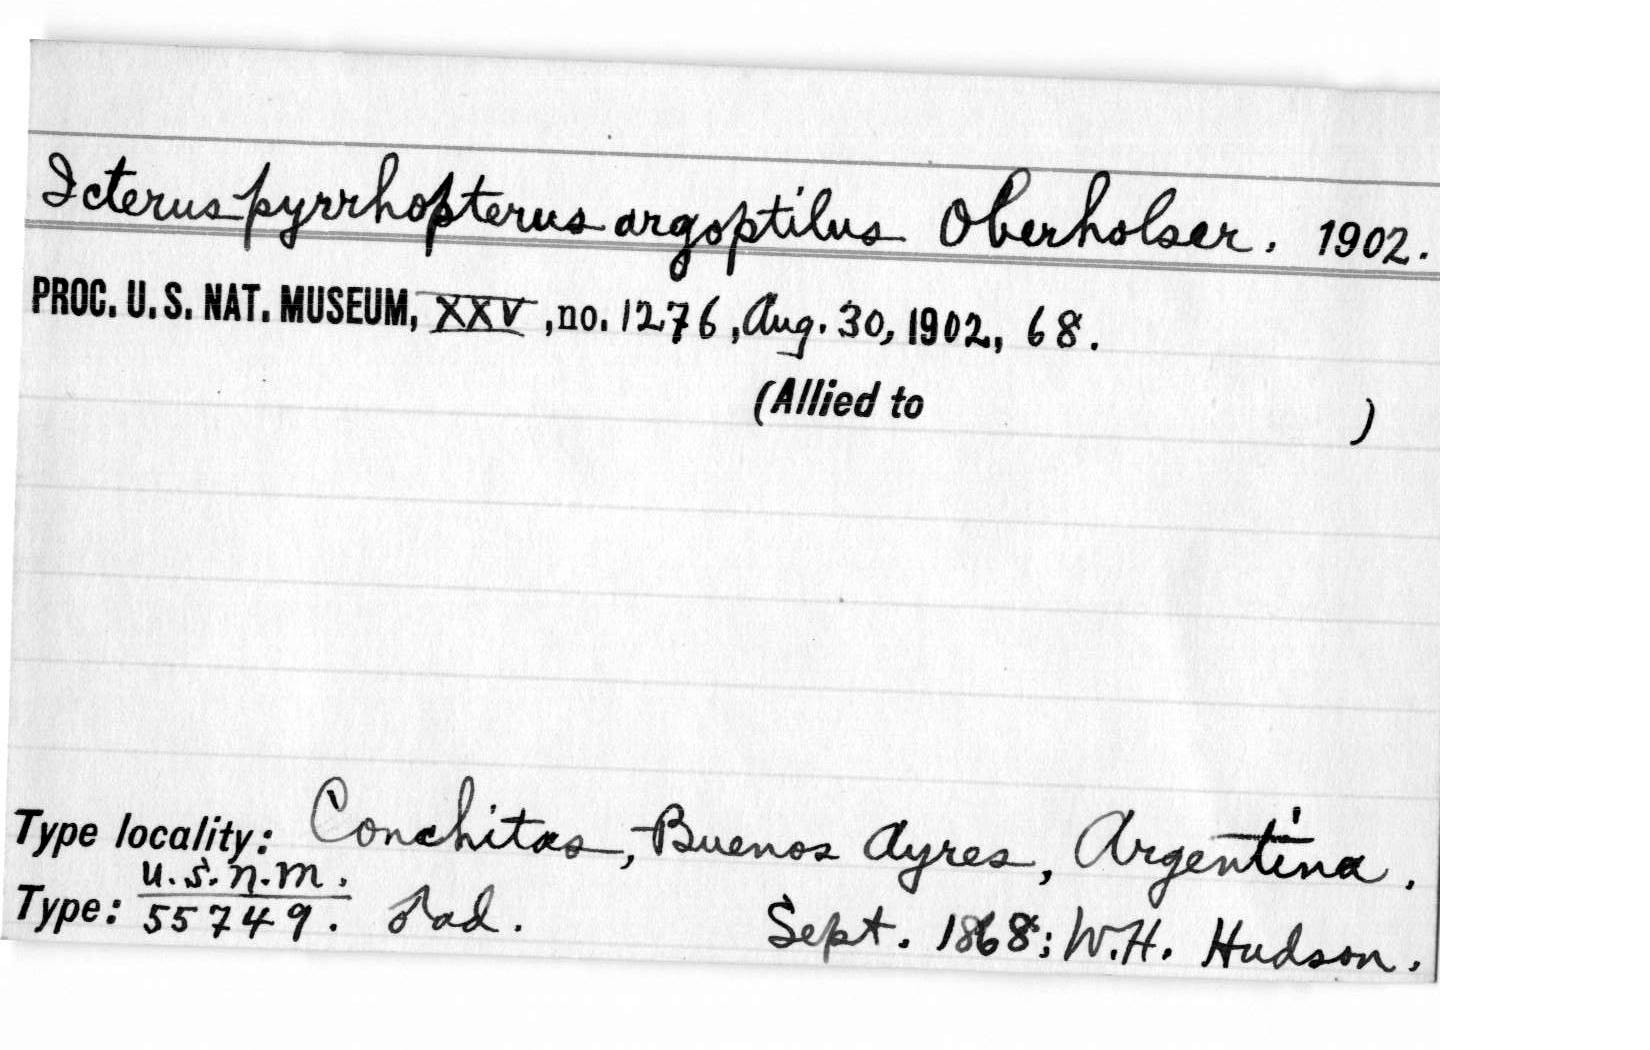 Icterus pyrrhopterus argoptilus Oberholser. 1902.
PROC. U. S. NAT. MUSEUM, XXV, no. 1276, Aug. 30, 1902, 68.
(Allied to )
Type locality: Conchitas, Buenos Ayres, Argentina.
U.S.N.M.
Type: 55749. ♂ad. Sept. 1868; W.H. Hudson.